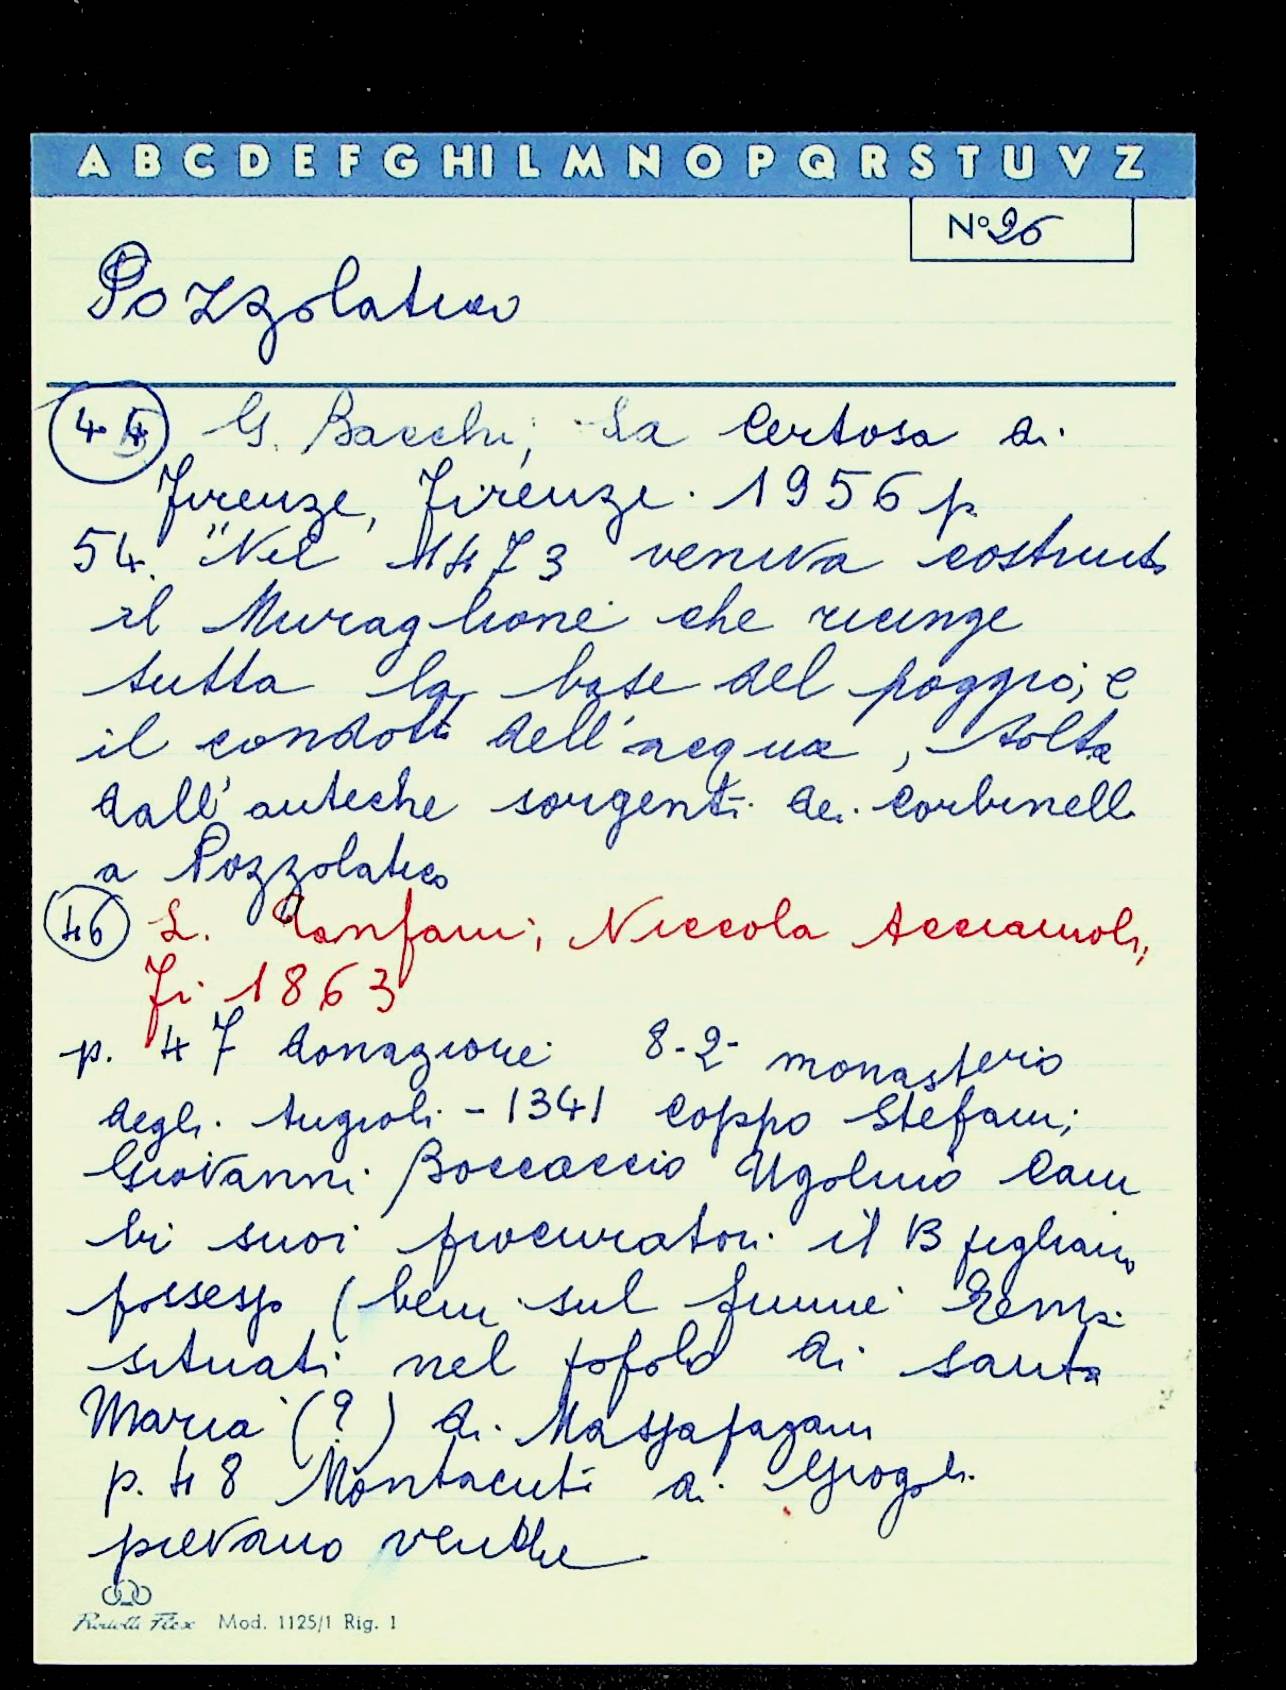 A B C D E F G HI L M N O P Q R S T U V Z
N° 26
Pozzolatico
45 G. Bacchi, La Certosa di
Firenze, Firenze. 1956 p
54. "Nel 1473 veniva costruito
il Muraglione che recinge
tutta la base del poggio; e
il condotto dell'acqua, tolta
dall'antiche sorgenti dei Corbinelli
a Pozzolatico
46 L. Tanfani, Niccola Acciaiuoli,
Fi 1863
p. 47 donazione 8-2- monasterio
degli Angioli - 1341 Coppo Stefani;
Giovanni Boccaccio Ugolino Cam
bi suoi procuratori il B pigliano
possesso (beni sul fiume Ema
situati nel popolo di santa
Maria (?) di Massapagani
p. 48 Montacuti di Giogoli
pievano
Mod. 1125/1 Rig. 1